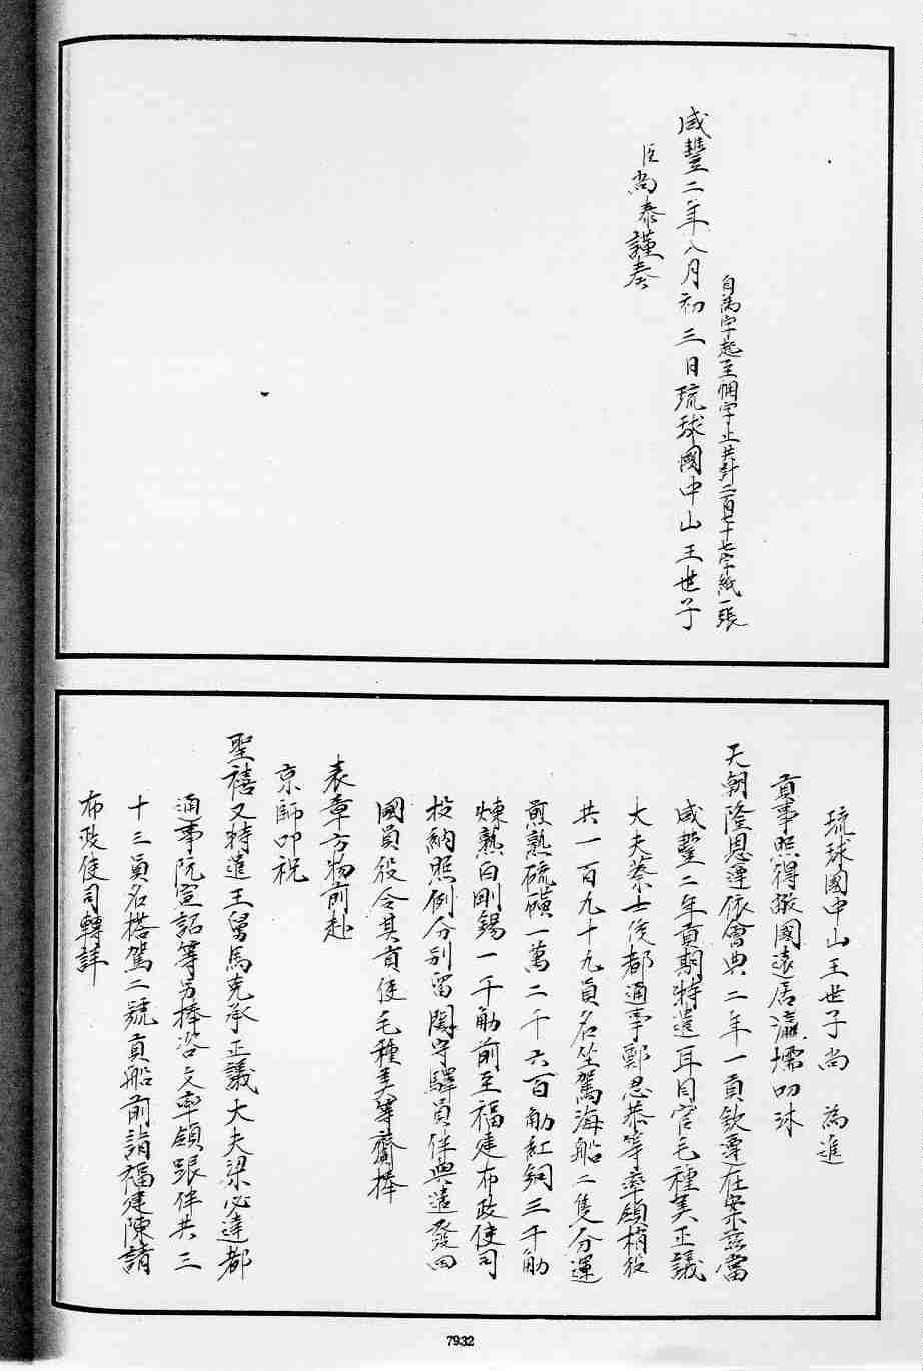 自為字起至悃字止共計二百七十七字紙一張
咸豐二年八月初三日琉球國中山王世子
臣尚泰謹奏
琉球國中山王世子尚 為進
貢事照得撇國遠居瀛壖叨沐
天朝隆恩遵依會典二年一貢欽遵在案茲當
咸豐二年貢期特遣耳目官毛種美正議
大夫蔡士俊都通事鄭忍恭等率領梢役
共一百九十九員名坐駕海船二隻分運
煎熟硫磺一萬二千六百觔紅銅三千觔
煉熟白剛錫一千觔前至福建布政使司
投納照例分別留閩守驛員伴與遣發回
國員役令其貢使毛種美等齎捧
表章方物前赴
京師叩祝
聖禧又特遣王舅馬克承正議大夫梁必達都
通事阮宣詔等另捧咨文率領跟伴共三
十三員名搭駕二號貢船前詣福建陳請
布政使司轉詳
7932